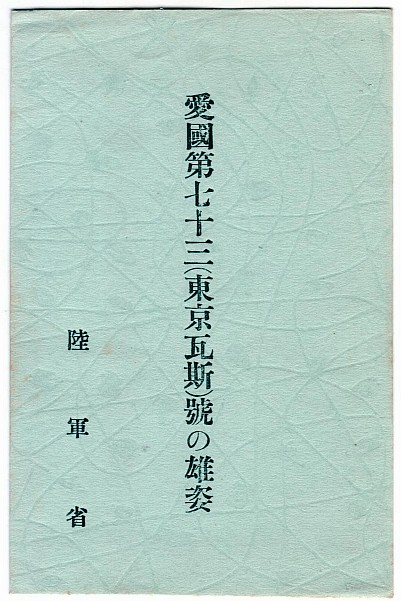 愛國第七十三(東京瓦斯)號の雄姿
陸軍省